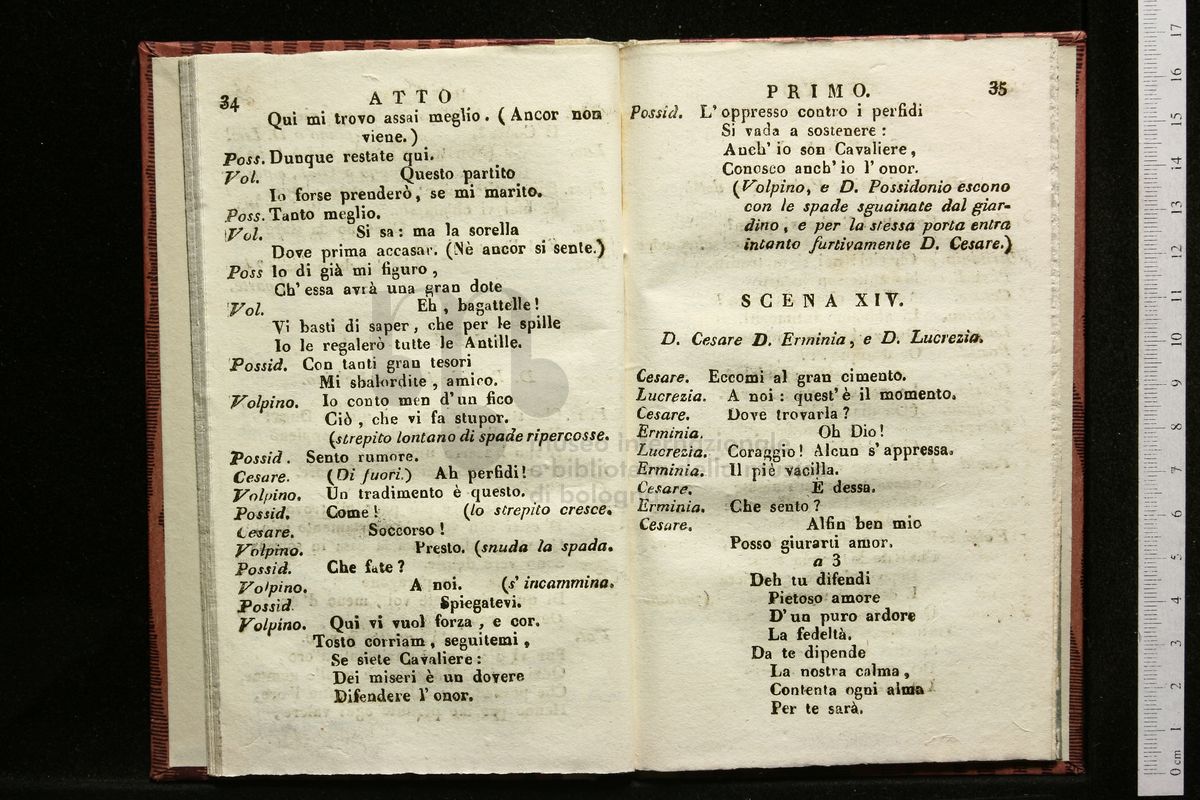 34
ATTO
Qui mi trovo assai meglio. (Ancor non
viene.)
Poss. Dunque restate qui.
Vol. Questo partito
Io forse prenderò, se mi marito.
Poss. Tanto meglio.
Vol. Si sa: ma la sorella
Dove prima accasar. (Nè ancor si sente.)
Poss Io di già mi figuro,
Ch' essa avrà una gran dote
Vol. Eh, bagattelle!
Vi basti di saper, che per le spille
Io le regalerò tutte le Antille.
Possid. Con tanti gran tesori
Mi sbalordite, amico.
Volpino. Io conto men d'un fico
Ciò, che vi fa stupor.
(strepito lontano di spade ripercosse.
Possid. Sento rumore.
Cesare. (Di fuori.) Ah perfidi!
Volpino. Un tradimento è questo.
Possid. Come! (lo strepito cresce.
Cesare. Soccorso!
Volpino. Presto. (snuda la spada.
Possid. Che fate?
Volpino. A noi. (s' incammina.
Possid. Spiegatevi.
Volpino. Qui vi vuol forza, e cor.
Tosto corriam, seguitemi,
Se siete Cavaliere:
Dei miseri è un dovere
Difendere l' onor.
PRIMO.
35
Possid. L' oppresso contro i perfidi
Si vada a sostenere:
Anch' io son Cavaliere,
Conosco anch' io l' onor.
(Volpino, e D. Possidonio escono
con le spade sguainate dal giar-
dino, e per la stessa porta entra
intanto furtivamente D. Cesare.)
SCENA XIV.
D. Cesare D. Erminia, e D. Lucrezia.
Cesare. Eccomi al gran cimento.
Lucrezia. A noi: quest' è il momento.
Cesare. Dove trovarla?
Erminia. Oh Dio!
Lucrezia. Coraggio! Alcun s' appressa.
Erminia. Il piè vacilla.
Cesare. È dessa.
Erminia. Che sento?
Cesare. Alfin ben mio
Posso giurarti amor.
a 3
Deh tu difendi
Pietoso amore
D' un puro ardore
La fedeltà.
Da te dipende
La nostra calma,
Contenta ogni alma
Per te sarà.
museo internazionale
e biblioteca della musica
di bologna
0 cm 1 2 3 4 5 6 7 8 9 10 11 12 13 14 15 16 17